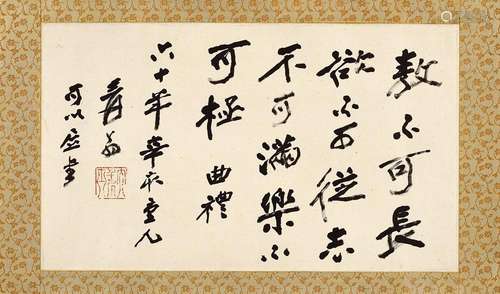 敖不可長
欲不可從志
不可滿樂不
可極 曲禮
六十年辛亥
爰翁
可以居